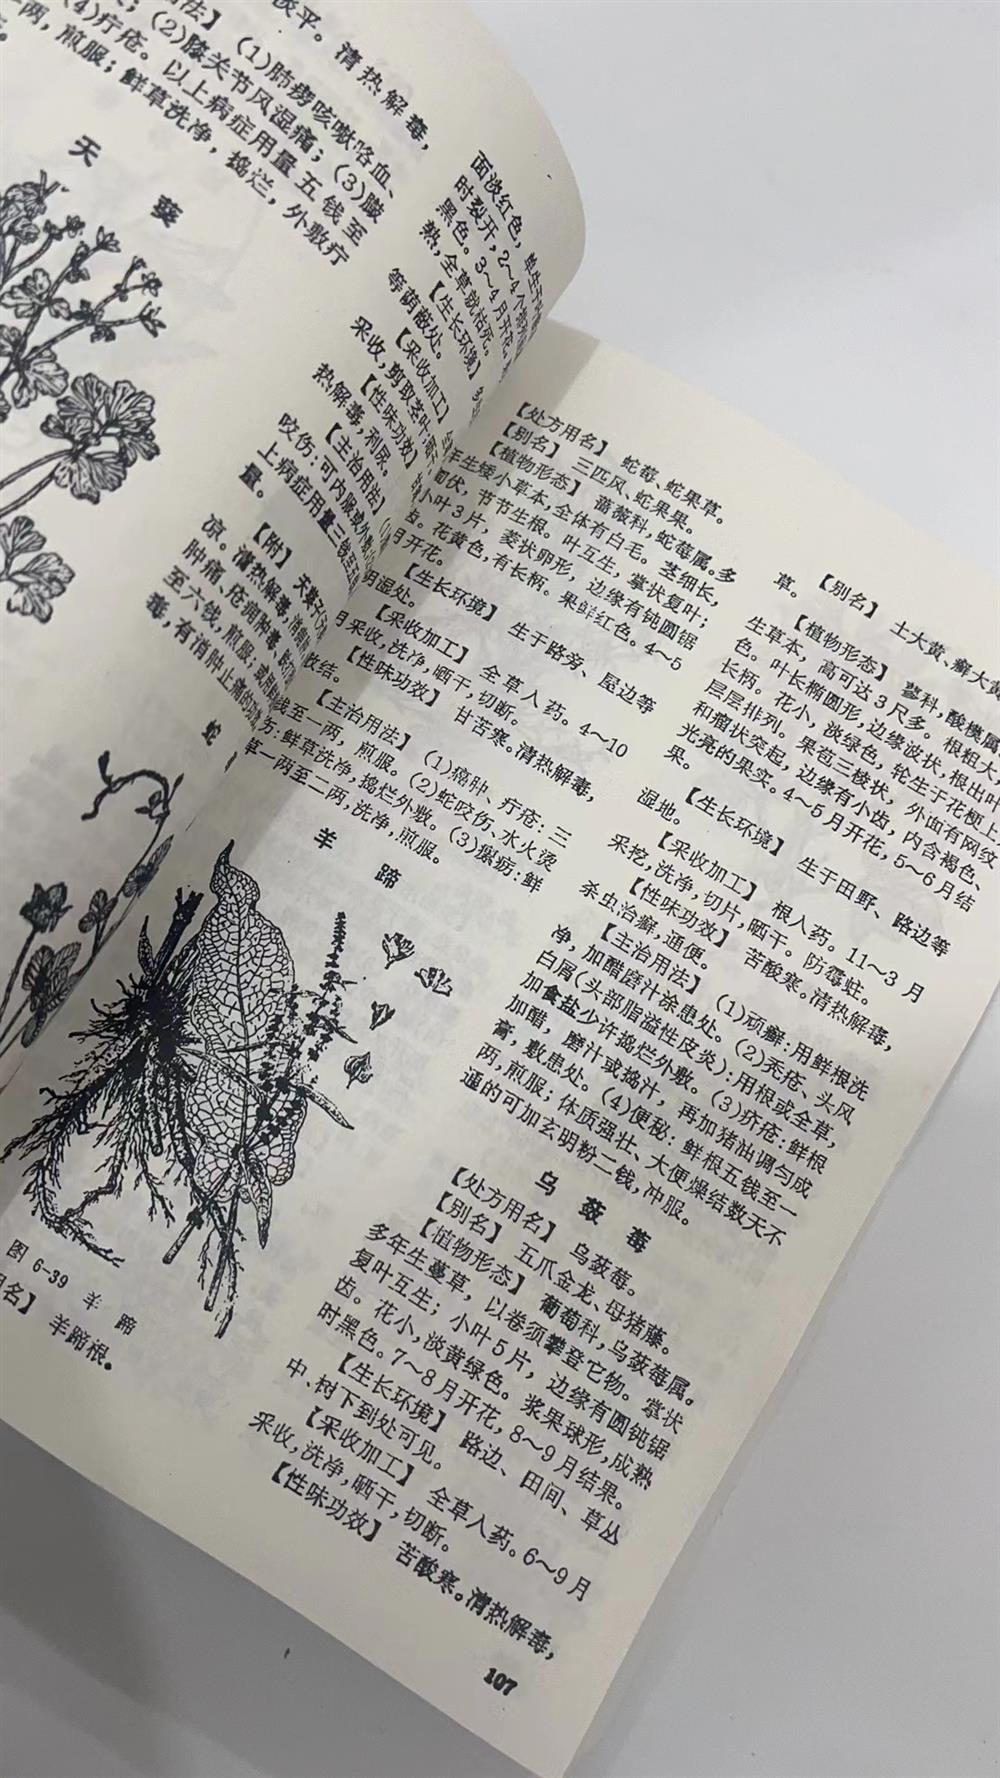 淡平。清热解毒，
法】 (1)肺痨咳嗽咯血、
；(2)膝关节风湿痛；(3)臌
(4)疔疮。以上病症用量五钱至
两，煎服；鲜草洗净，捣烂，外敷疗
天 葵
面淡红色，
时裂开，2～4个
黑色。3～4月开花。
热，全草就枯死。
【生长环境】
等荫蔽处。
【采收加工】
采收，剪取茎叶；
【性味功效】
热解毒，利尿。
【主治用法】
咬伤：可内服或外
上病症用量三钱至
量。
【附】 天葵子
凉。清热解毒，消
肿痛、疮疖肿毒、
至六钱，煎服；或用
毒，有消肿止痛的功
蛇
【处方用名】 蛇莓、蛇果草。
【别名】 三匹风、蛇果果。
【植物形态】 蔷薇科，蛇莓属。多
年生矮小草本，全体有白毛。茎细长，
匍伏，节节生根。叶互生，掌状复叶；
小叶3片，菱状卵形，边缘有钝圆锯
齿。花黄色，有长柄。果鲜红色。4～5
月开花。
【生长环境】 生于路旁、屋边等
阴湿处。
【采收加工】 全草入药。4～10
月采收，洗净，晒干，切断。
【性味功效】 甘苦寒。清热解毒，
收结。
【主治用法】 (1)癌肿、疔疮：三
钱至一两，煎服。(2)蛇咬伤、水火烫
伤：鲜草洗净，捣烂外敷。(3)瘰疬：鲜
草一两至二两，洗净，煎服。
羊 蹄
图 6-39 羊 蹄
用名】 羊蹄根。
【别名】 土大黄、癣大黄
草。
【植物形态】 蓼科，酸模属
生草本，高可达3尺多。根粗大，
色。叶长椭圆形，边缘波状，根出叶
长柄。花小，淡绿色，轮生于花梗上，
层层排列。果苞三棱状，外面有网纹
和瘤状突起，边缘有小齿，内含褐色、
光亮的果实。4～5月开花，5～6月结
果。
【生长环境】 生于田野、路边等
湿地。
【采收加工】 根入药。11～3月
采挖，洗净，切片，晒干。防霉蛀。
【性味功效】 苦酸寒。清热解毒，
杀虫治癣，通便。
【主治用法】 (1)顽癣：用鲜根洗
净，加醋磨汁涂患处。(2)秃疮、头风
白屑(头部脂溢性皮炎)：用根或全草，
加食盐少许捣烂外敷。(3)疥疮：鲜根
加醋，磨汁或捣汁，再加猪油调匀成
膏，敷患处。(4)便秘：鲜根五钱至一
两，煎服；体质强壮、大便燥结数天不
通的可加玄明粉二钱，冲服。
乌 蔹 莓
【处方用名】 乌蔹莓。
【别名】 五爪金龙、母猪藤。
【植物形态】 葡萄科，乌蔹莓属。
多年生蔓草，以卷须攀登它物。掌状
复叶互生；小叶5片，边缘有圆钝锯
齿。花小，淡黄绿色。浆果球形，成熟
时黑色。7～8月开花，8～9月结果。
【生长环境】 路边、田间、草丛
中、树下到处可见。
【采收加工】 全草入药。6～9月
采收，洗净，晒干，切断。
【性味功效】 苦酸寒。清热解毒，
107